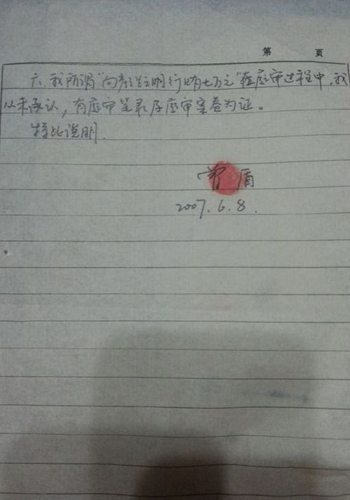 第 页
六、我所谓"向彭泽明行贿七万元"在庭审过程中,我
从未承认,有庭审笔录及庭审案卷为证。
特此说明
曾盾
2007.6.8.